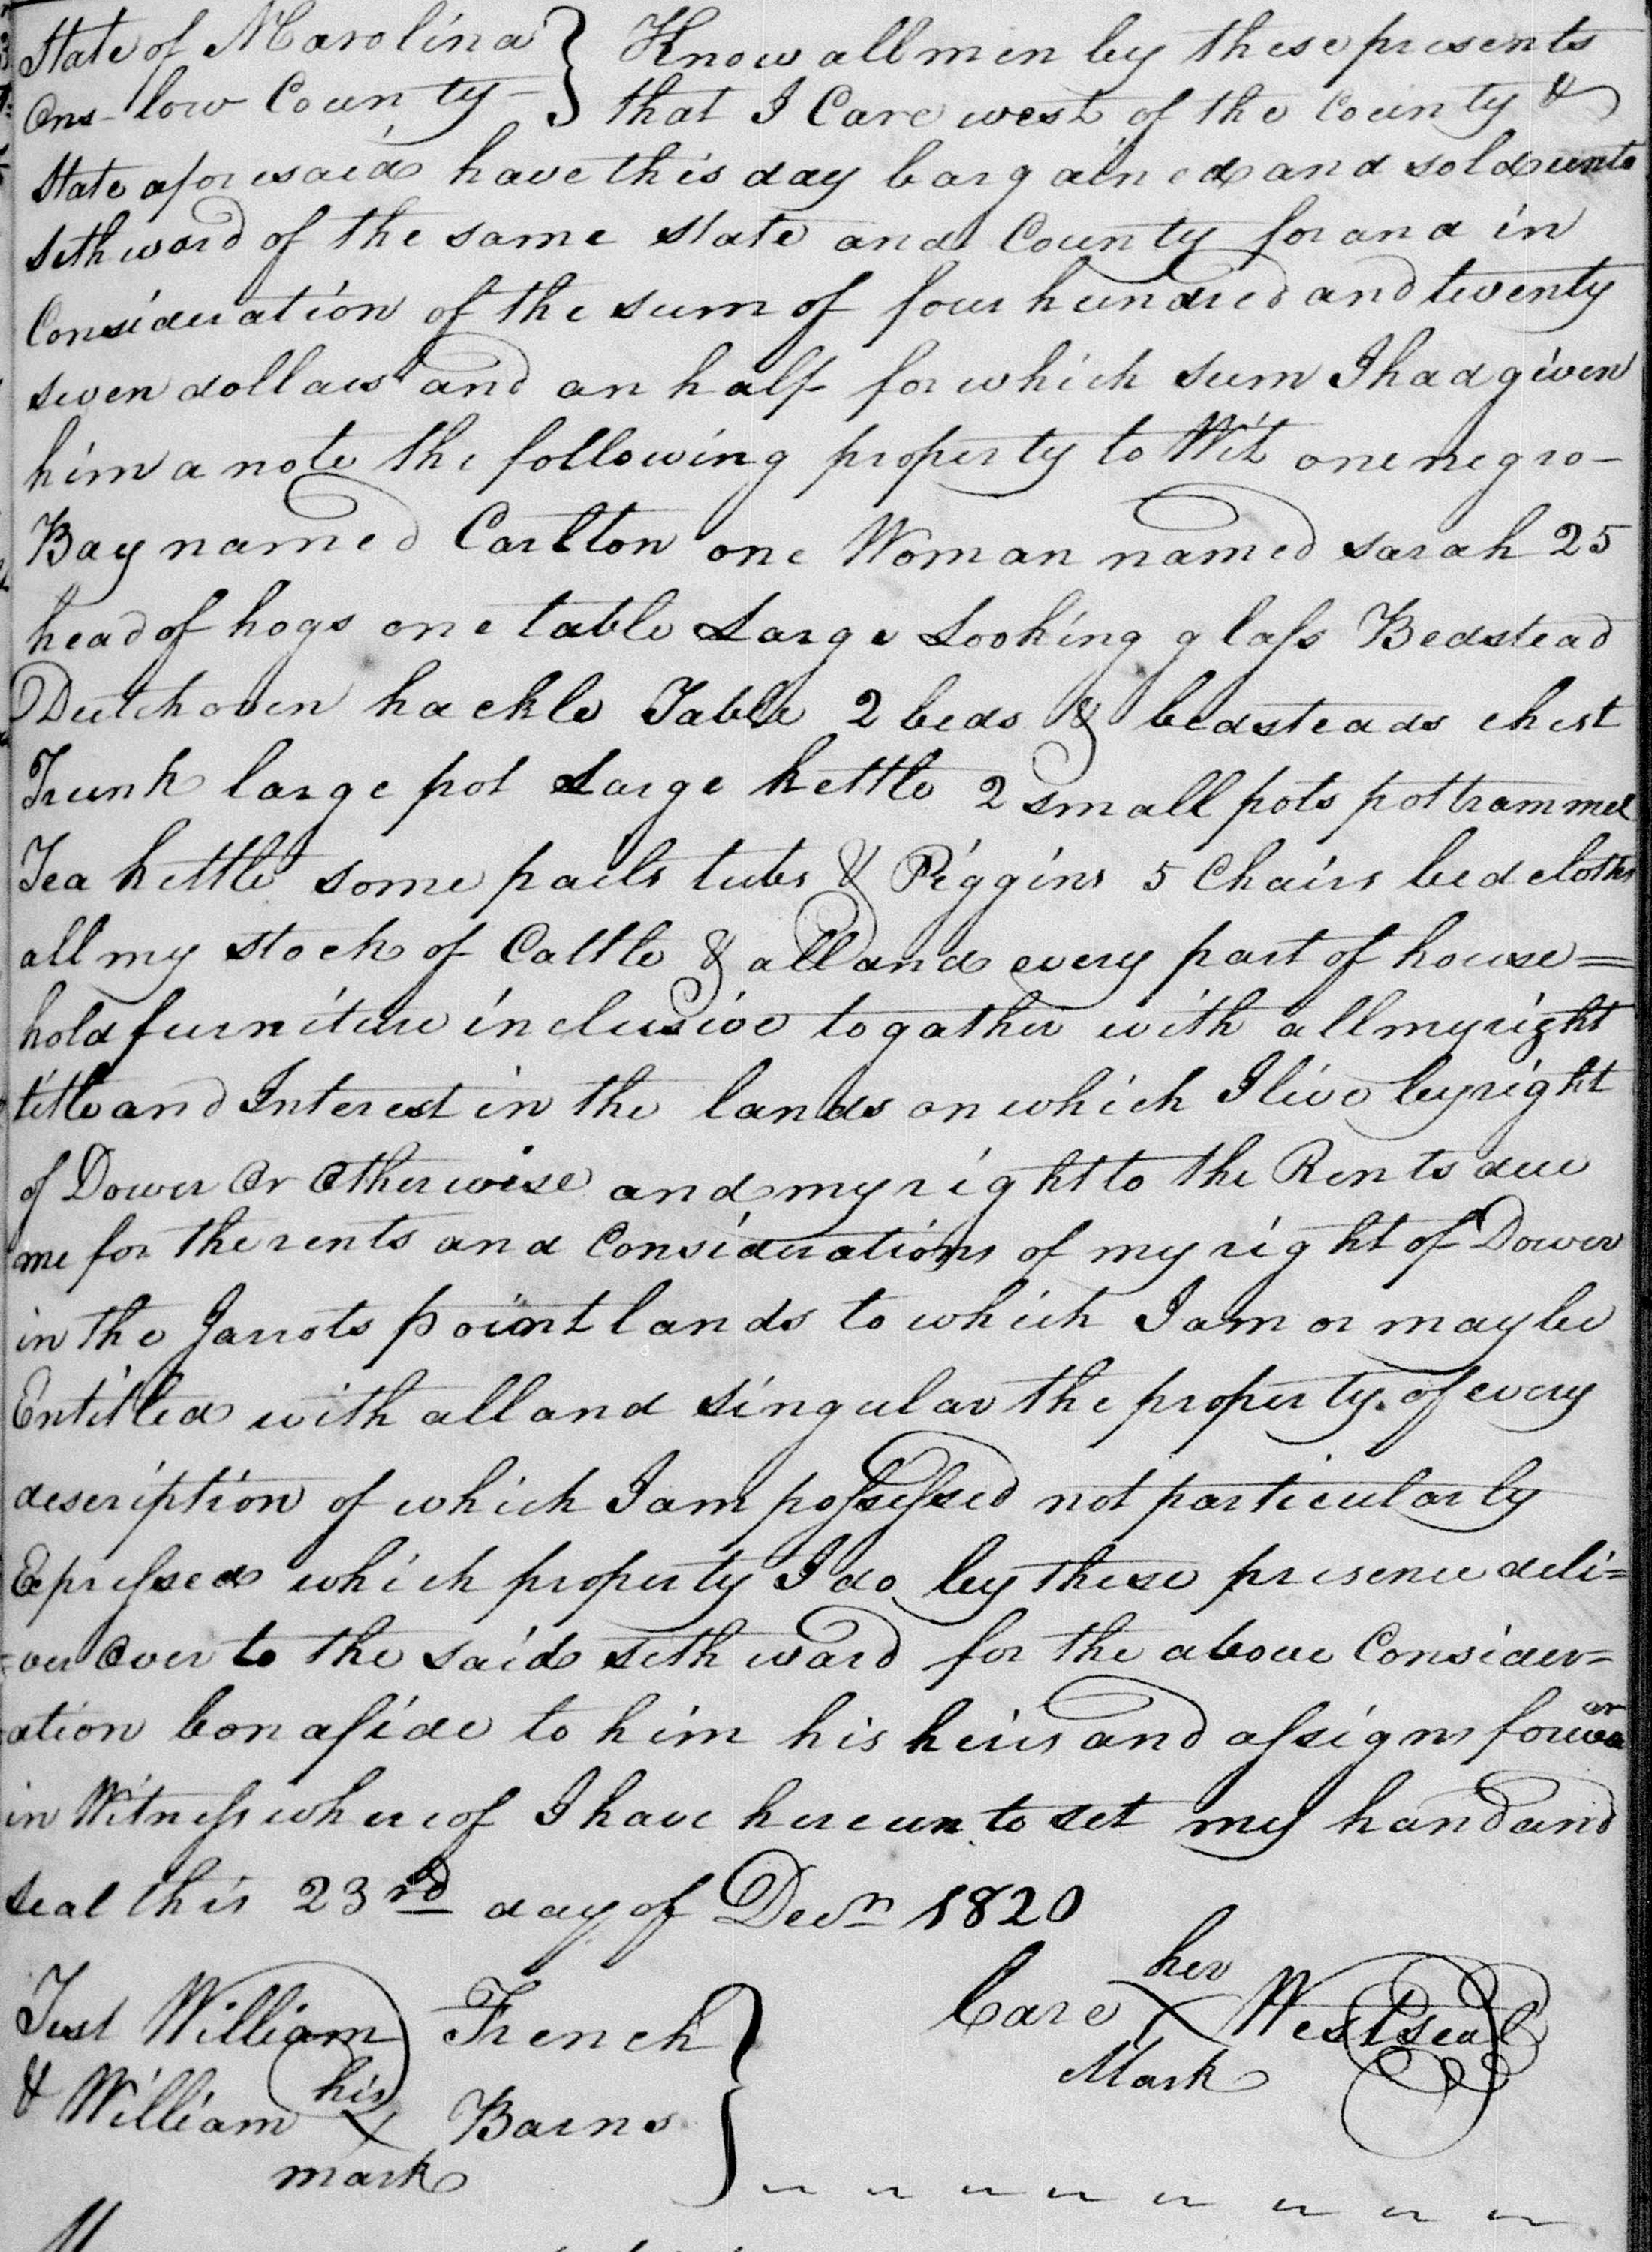 State of N Carolina } Know all men by these presents
Ons-low County - } that I Care west of the County &
State aforesaid have this day bargained and sold unto
Seth ward of the same state and County for and in
Consideration of the sum of four hundred and twenty
seven dollars and an half for which sum I had given
him a note the following property to Wit one negro -
Bay named Carlton one Woman named sarah 25
head of hogs one table Large Looking glass Bedstead
Dutchoven hackle Table 2 beds & bedsteads chest
Trunk large pot Large kettle 2 small pots pottrammel
Tea kettle some pails tubs & Piggins 5 Chairs bed cloths
all my stock of Cattle & all and every part of house=
hold furniture inclusive togather with all my right
title and Interest in the lands on which I live by right
of Dower Or Otherwise and my right to the Rents due
me for the rents and Considerations of my right of Dower
in the Jarrots point lands to which I am or may be
Entitled with all and singular the property of every
description of which I am possessed not particularly
Expressed which property I do by these presence deli=
=ver Over to the said seth ward for the above Consider=
ation bonafide to him his heirs and assigns forever
in Witness whereof I have hereunto set my hand and
seal this 23rd day of Decr 1820
her
Test William French } Care X West seal
his Mark
& William X Barns
mark